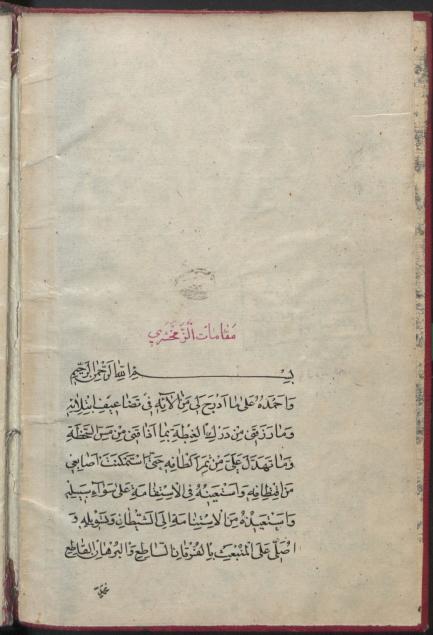 مقامات الزمخشري
بسم الله الرحمن الرحيم
واحمده على ما ادرج لى من آلائه فى تضاعيف ابتلائه
وما رزقنى من درك الغبطة بما اذاقنى من مس السخطة
وما تهدل على من ثمر الطافه حتى استمكنت اصابعى
من اقتطافه واستعينه فى الاستقامة على سواء سبيله
واستعيذه من الاستنامة الى الشيطان وتسويله و
اصلى على المبتعث بالفرقان الساطع والبرهان القاطع
محمد